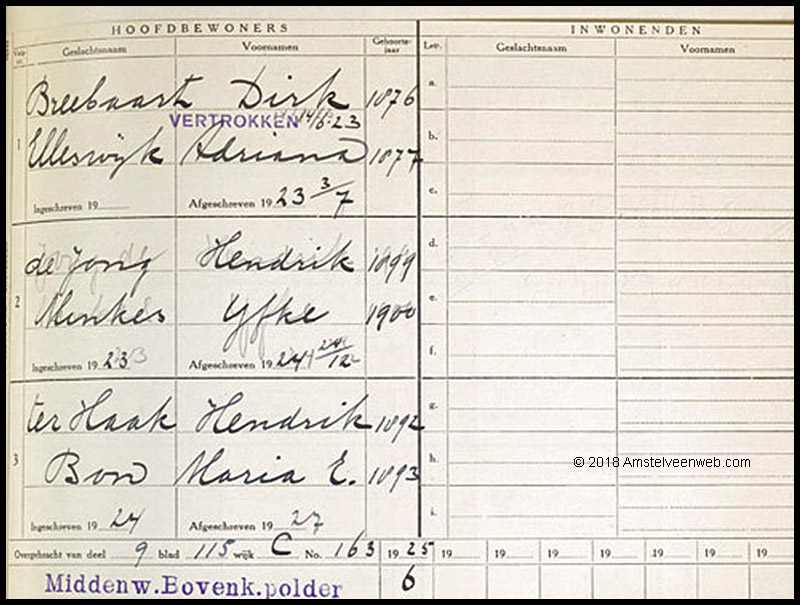 HOOFDBEWONERS INWONENDEN
Geslachtsnaam Voornamen Geboortejaar Lett. Geslachtsnaam Voornamen
Breebaart Dirk 1876 a.
VERTROKKEN 14/6-23
1 Elleswijk Adriana 1877 b.
Ingeschreven 19 Afgeschreven 19 23 3/7 c.
de Jong Hendrik 1899 d.
2 Minkes Yfke 1900 e.
Ingeschreven 19 23 Afgeschreven 19 24 24/12 f.
ter Haak Hendrik 1892 g.
3 Bon Maria E. 1893 h.
© 2018 Amstelveenweb.com
Ingeschreven 19 24 Afgeschreven 19 27 i.
Overgebracht van deel 9 blad 115 wijk C No. 163 19 25 19 19 19 19 19 19 19
Middenw.Bovenk.polder 6